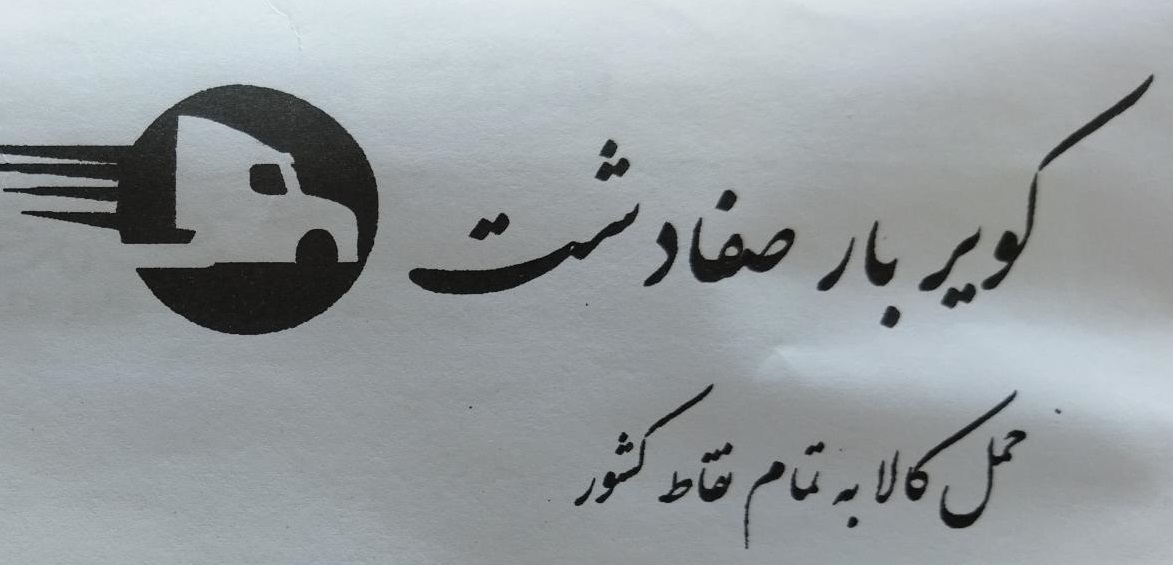 کویر بار صفادشت
حمل کالا به تمام نقاط کشور